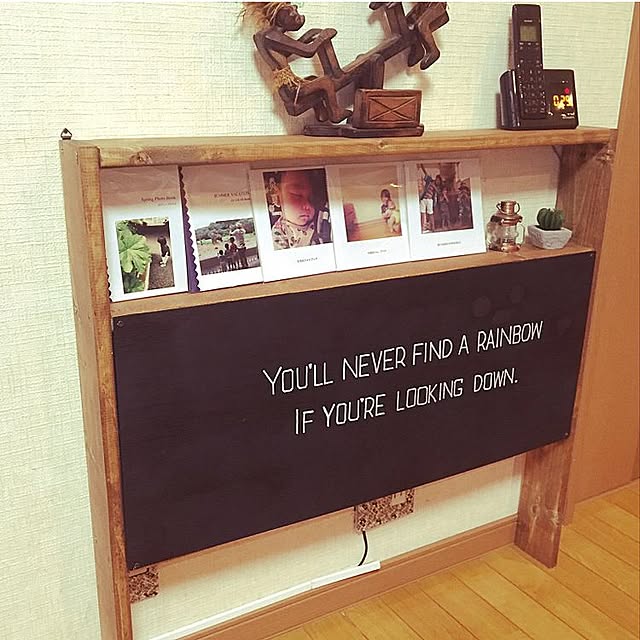 Spring Photo Book
YOU'LL NEVER FIND A RAINBOW
IF YOU'RE LOOKING DOWN.